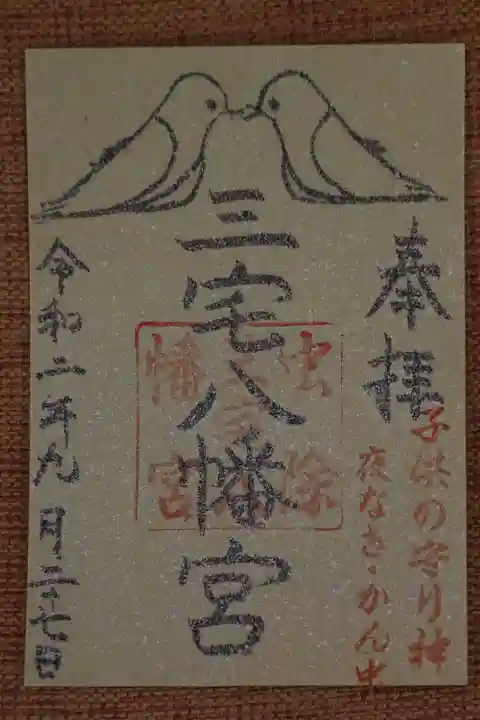 奉拝
子供の守り神
夜なき・かん虫
三宅八幡宮
虫除
八幡宮
令和二年九月二十七日